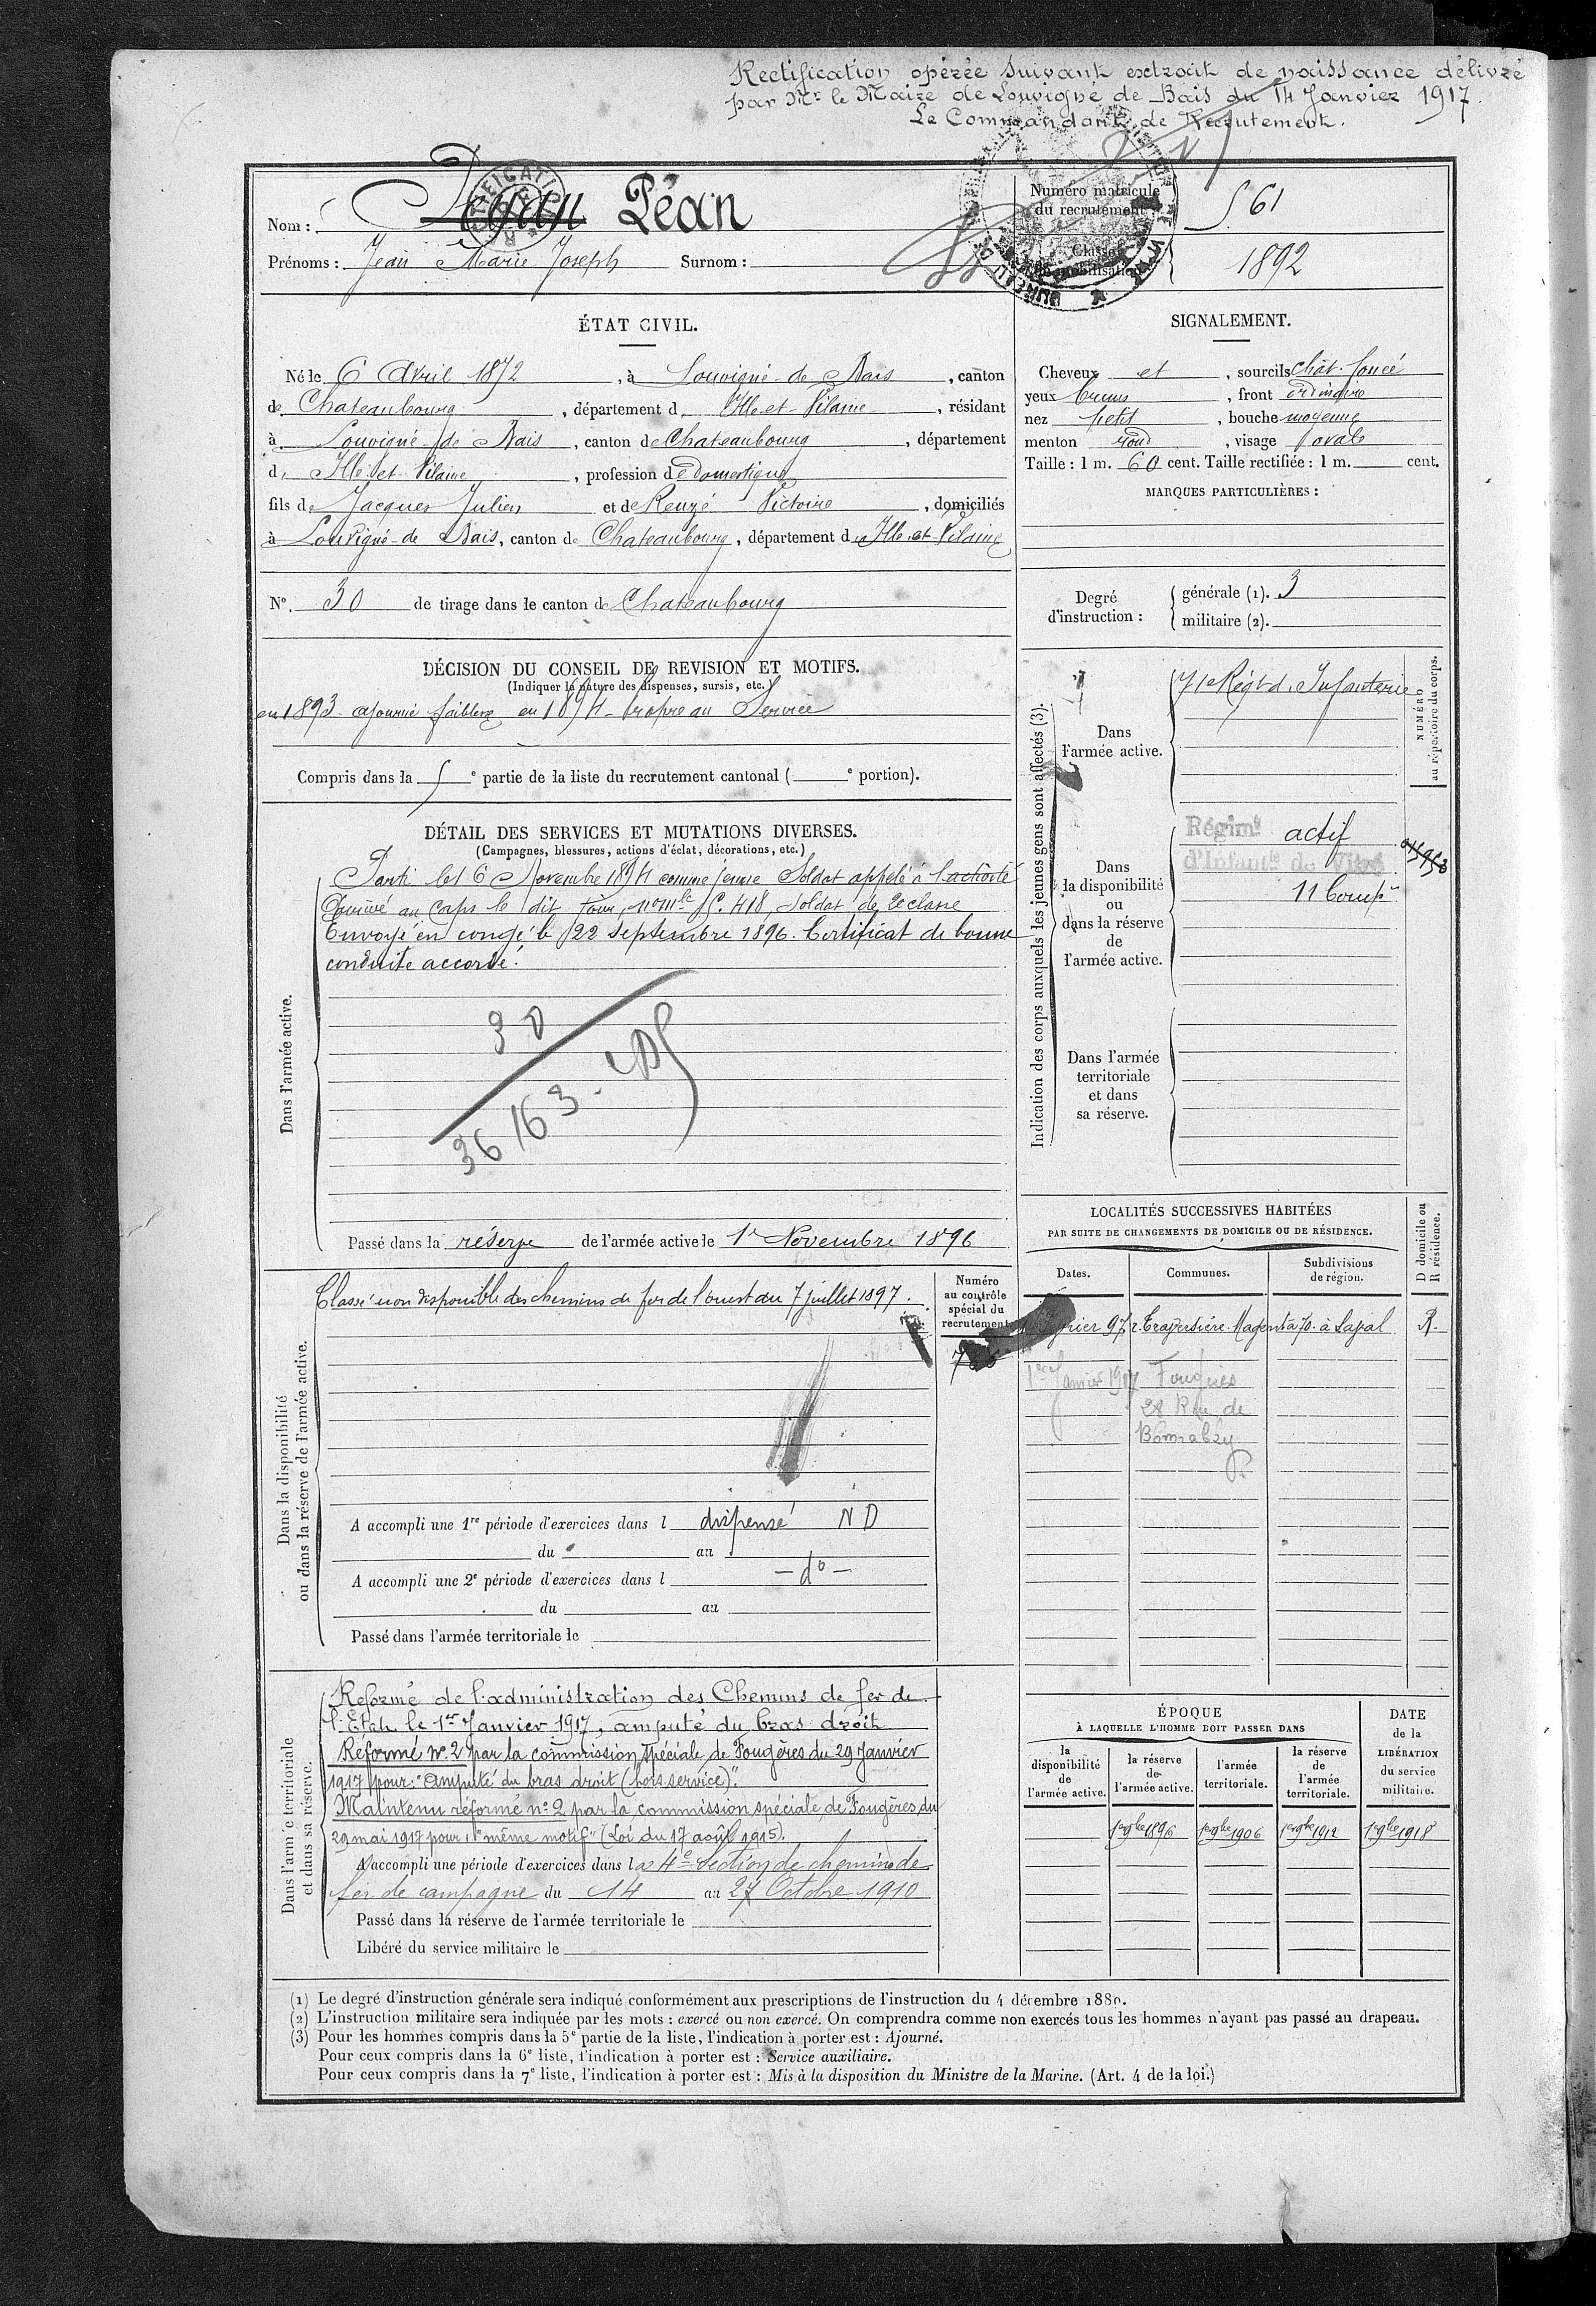 Rectification opérée suivant extrait de naissance délivré
par Mr le Maire de Louvigné de Bais du 14 Janvier 1917.
Le Commandant de Recrutement.
Nom : Péan
Prénoms : Jean Marie Joseph Surnom :
Numéro matricule du recrutement 561
Classe de mobilisation 1892
ÉTAT CIVIL.
Né le 6 Avril 1872, à Louvigné-de Bais, canton
de Chateaubourg, département d Ille et Vilaine, résidant
à Louvigné de Bais, canton de Chateaubourg, département
d Ille et Vilaine, profession de domestique
fils de Jacques Julien et de Renzé Victoire, domiciliés
à Louvigné-de Bais, canton de Chateaubourg, département d Ille et Vilaine
No. 30 de tirage dans le canton de Chateaubourg
SIGNALEMENT.
Cheveux et, sourcils chât. foncé
yeux bruns, front ordinaire
nez petit, bouche moyenne
menton rond, visage ovale
Taille : 1 m. 60 cent. Taille rectifiée : 1 m. cent.
MARQUES PARTICULIÈRES :
Degré d'instruction :
générale (1). 3
militaire (2).
DÉCISION DU CONSEIL DE REVISION ET MOTIFS.
(Indiquer la nature des dispenses, sursis, etc.)
en 1893 ajourné faiblesse en 1894 - propre au Service
Compris dans la 5e partie de la liste du recrutement cantonal ( e portion).
DÉTAIL DES SERVICES ET MUTATIONS DIVERSES.
(Campagnes, blessures, actions d'éclat, décorations, etc.)
Dans l'armée active.
Parti le 16 Novembre 1894 comme jeune Soldat appelé à l'activité
Arrivé au Corps le dit jour, no mle 5.418, Soldat de 2e classe
Envoyé en congé le 22 septembre 1896. Certificat de bonne
conduite accordé.
30
36163
Passé dans la réserve de l'armée active le 1r Novembre 1896
Indication des corps auxquels les jeunes gens sont affectés (3).
NUMÉRO au répertoire du corps.
Dans l'armée active.
71e Régt d'Infanterie
Dans la disponibilité ou dans la réserve de l'armée active.
Régimt actif
d'Infantie de Vitré
11 Comp
Dans l'armée territoriale et dans sa réserve.
LOCALITÉS SUCCESSIVES HABITÉES
PAR SUITE DE CHANGEMENTS DE DOMICILE OU DE RÉSIDENCE.
D domicile ou R résidence.
Dates. Communes. Subdivisions de région.
97 r. Magenta 70. à Laval R.
1er Janvier 1917 Fougères
28 Rue de
Bonabry
R
Dans la disponibilité ou dans la réserve de l'armée active.
Numéro au contrôle spécial du recrutement
Classé non disponible des chemins de fer de l'ouest du 7 juillet 1897.
A accompli une 1re période d'exercices dans l dispensé ND
du au
A accompli une 2e période d'exercices dans l - do -
du au
Passé dans l'armée territoriale le
Dans l'armée territoriale et dans sa réserve.
Réformé de l'administration des Chemins de fer de
l'Etat le 1er Janvier 1917, amputé du bras droit
Réformé no 2 par la commission spéciale de Fougères du 29 Janvier
1917 pour: "amputé du bras droit (hors service)".
Maintenu réformé no 2 par la commission spéciale de Fougères du
29 mai 1917 pour: "même motif" (Loi du 17 août 1915).
A accompli une période d'exercices dans la 4e Section de chemin de
fer de campagne du 14 au 27 Octobre 1910
Passé dans la réserve de l'armée territoriale le
Libéré du service militaire le
ÉPOQUE
À LAQUELLE L'HOMME DOIT PASSER DANS
la disponibilité de l'armée active.
la réserve de l'armée active.
l'armée territoriale.
la réserve de l'armée territoriale.
DATE de la LIBÉRATION du service militaire.
1er 9bre 1896 1er 9bre 1906 1er 9bre 1912 1er 9bre 1918
(1) Le degré d'instruction générale sera indiqué conformément aux prescriptions de l'instruction du 4 décembre 1889.
(2) L'instruction militaire sera indiquée par les mots : exercé ou non exercé. On comprendra comme non exercés tous les hommes n'ayant pas passé au drapeau.
(3) Pour les hommes compris dans la 5e partie de la liste, l'indication à porter est : Ajourné.
Pour ceux compris dans la 6e liste, l'indication à porter est : Service auxiliaire.
Pour ceux compris dans la 7e liste, l'indication à porter est : Mis à la disposition du Ministre de la Marine. (Art. 4 de la loi.)